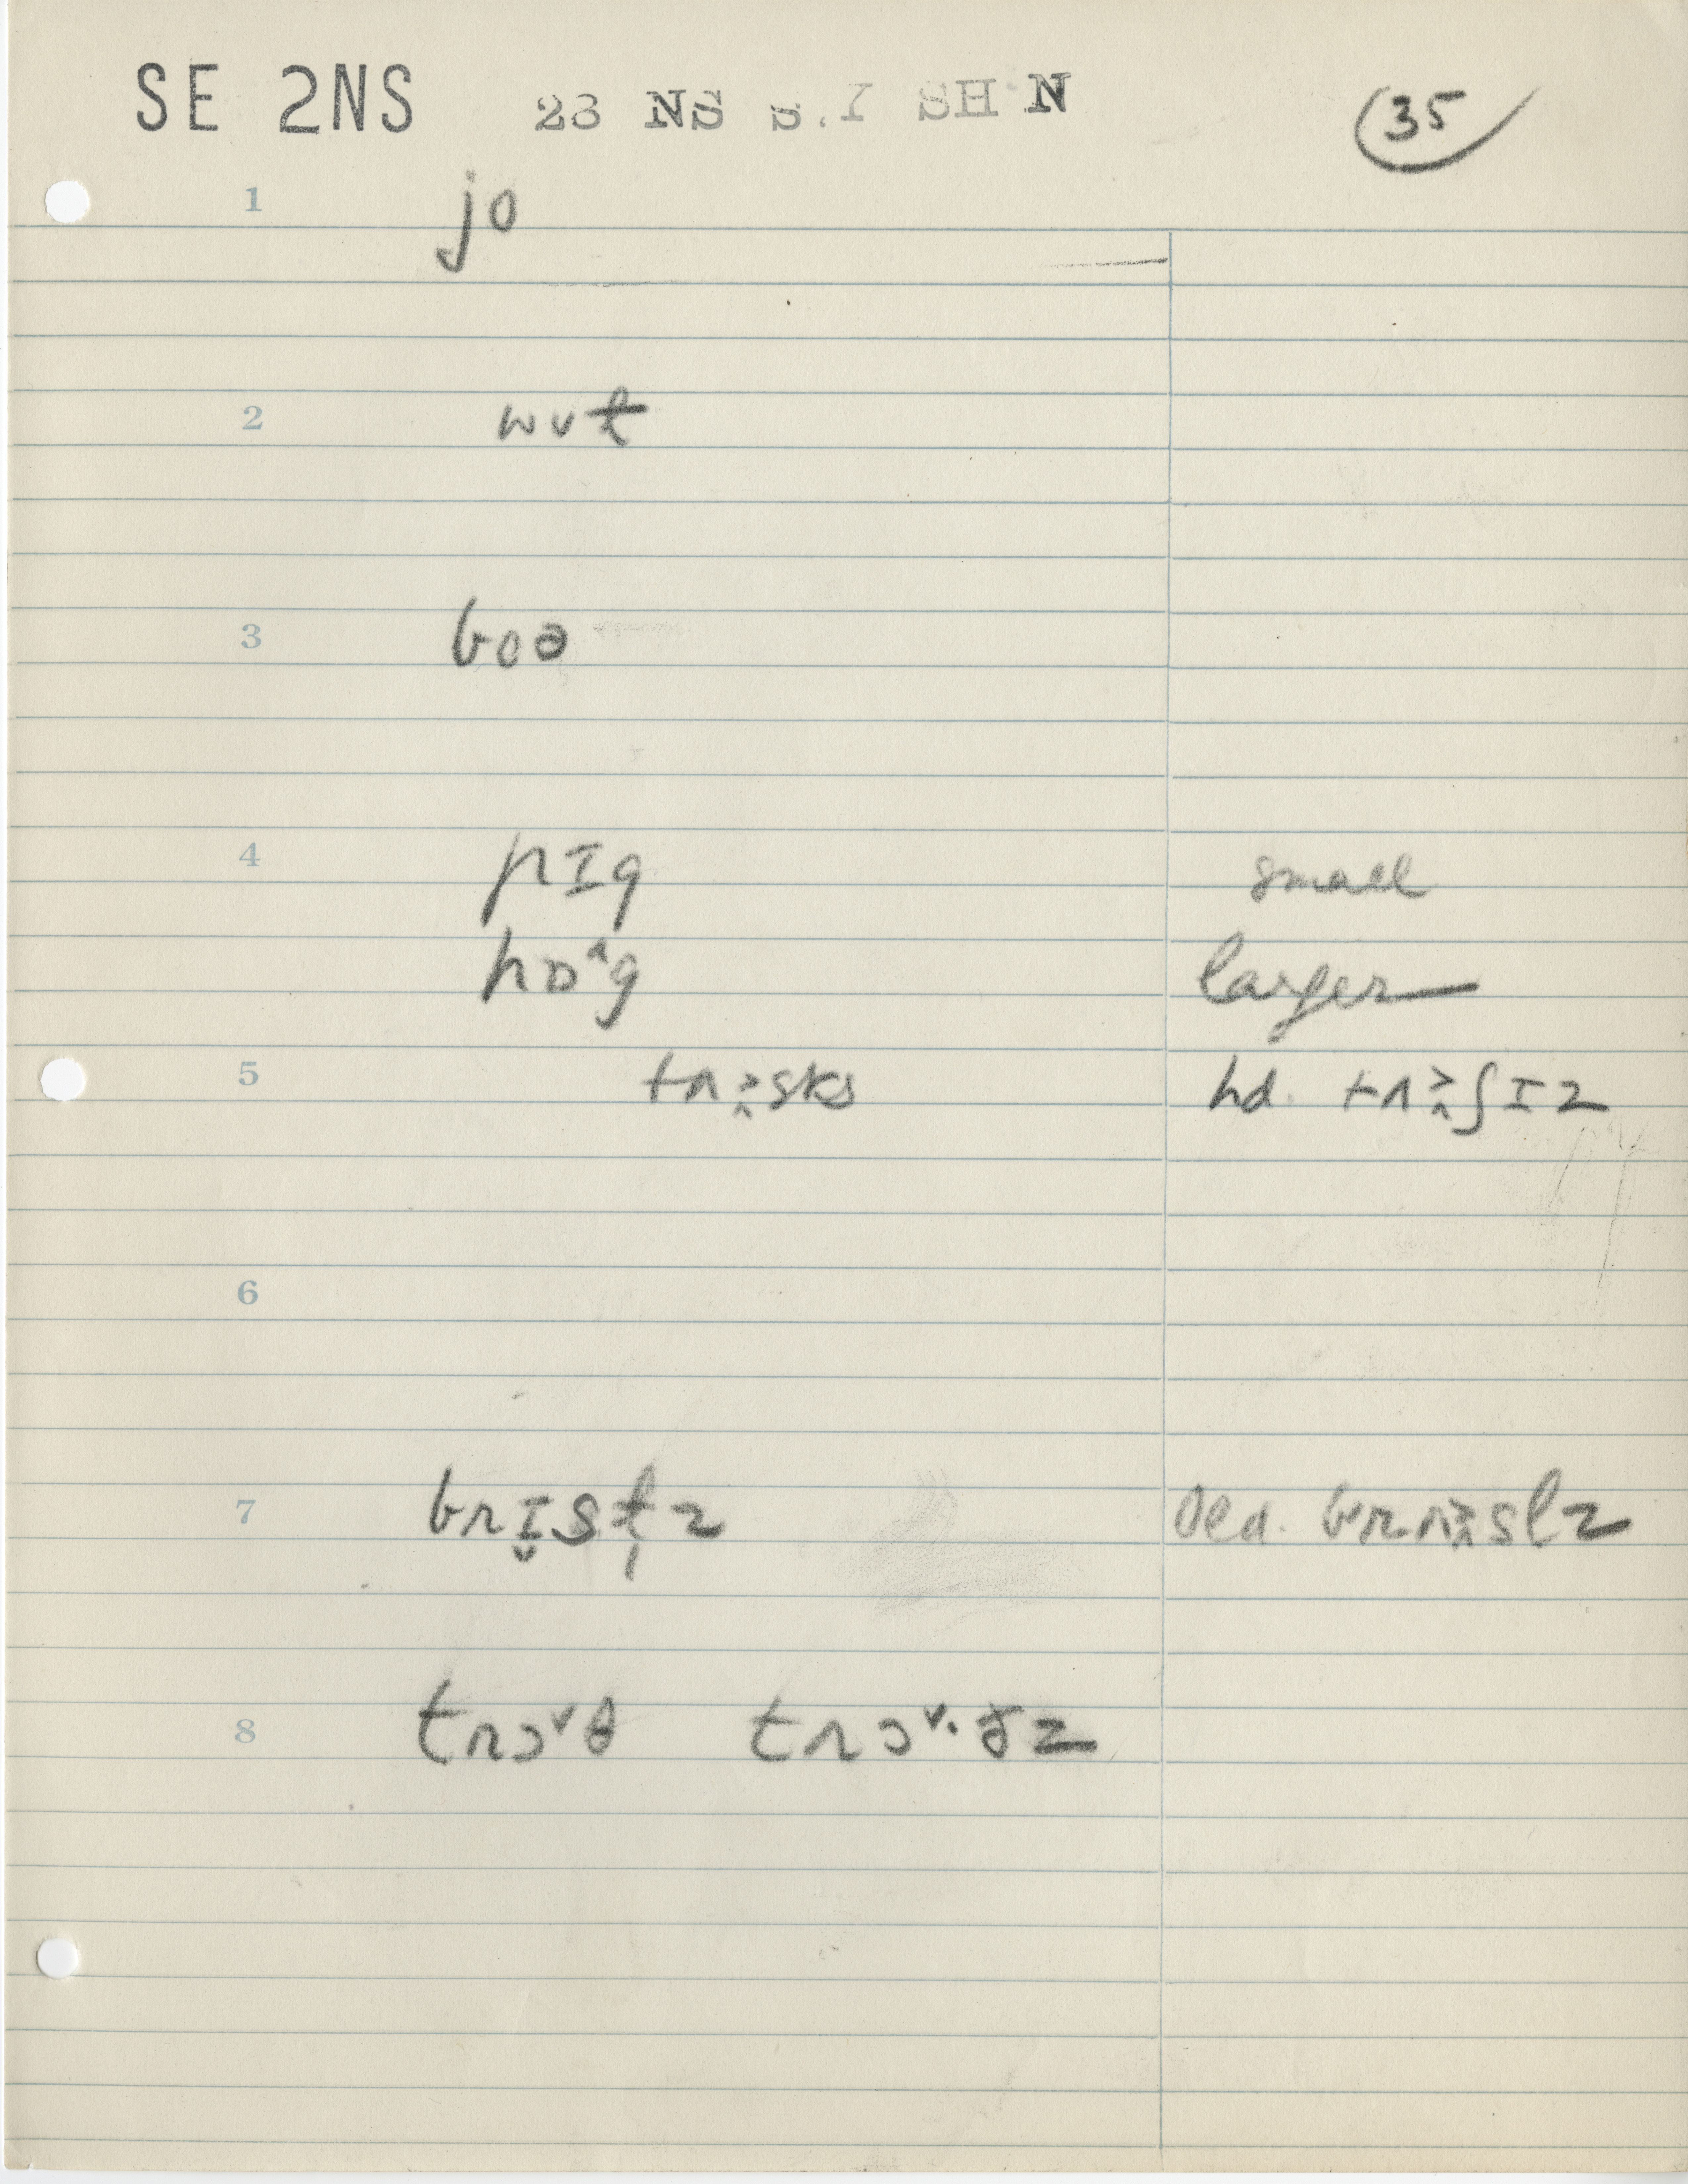 SE 2NS 23 NS S. Y SH N 35
1 jo
2 wʊt
3 boə
4 pɪg small
hɒ˄g larger
5 tʌsks hd. tʌʃɪz
6
7 brɪ̬stl̩z
8 trɔ˅θ trɔ˅·ðz